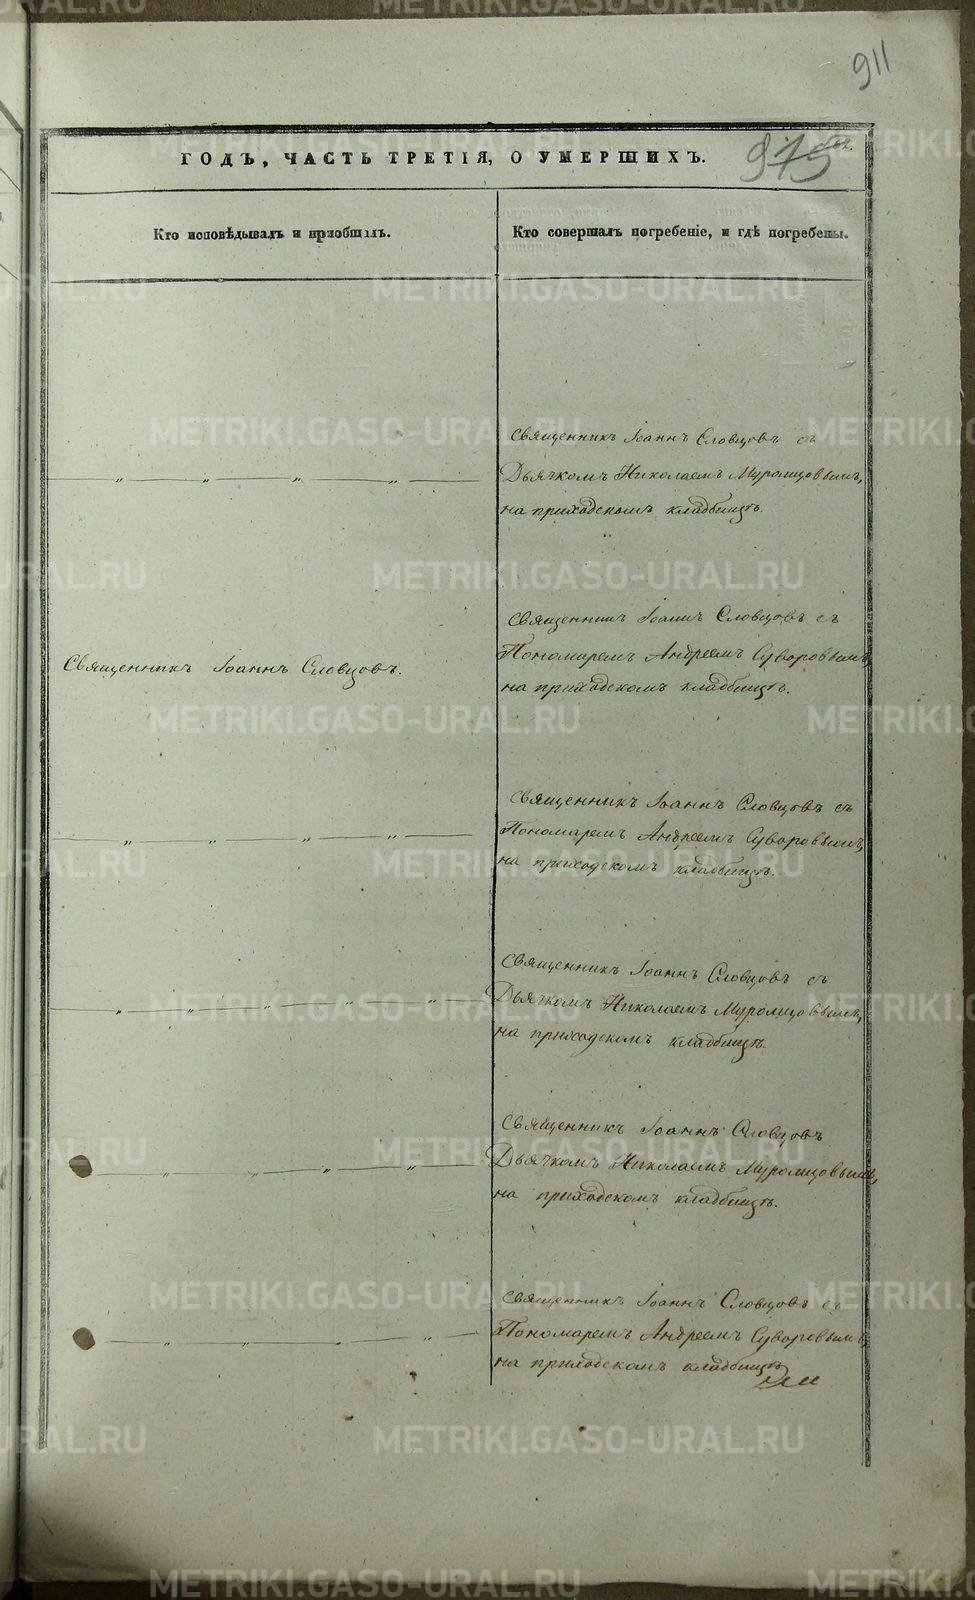 911
ГОДЪ, ЧАСТЬ ТРЕТІЯ, О УМЕРШИХЪ.
975
Кто исповѣдывалъ и пріобщалъ.
Кто совершалъ погребеніе, и гдѣ погребены.
Священникъ Іоаннъ Словцовъ съ
Дьячкомъ Николаемъ Муромцовымъ,
на приходскомъ кладбищѣ.
Священникъ Іоаннъ Словцовъ.
Священникъ Іоаннъ Словцовъ съ
Пономаремъ Андреемъ Суворовымъ,
на приходскомъ кладбищѣ.
Священникъ Іоаннъ Словцовъ съ
Пономаремъ Андреемъ Суворовымъ,
на приходскомъ кладбищѣ.
Священникъ Іоаннъ Словцовъ съ
Дьячкомъ Николаемъ Муромцовымъ,
на приходскомъ кладбищѣ.
Священникъ Іоаннъ Словцовъ
Дьячкомъ Николаемъ Муромцовымъ,
на приходскомъ кладбищѣ.
Священникъ Іоаннъ Словцовъ съ
Пономаремъ Андреемъ Суворовымъ,
на приходскомъ кладбищѣ
METRIKI.GASO-URAL.RU